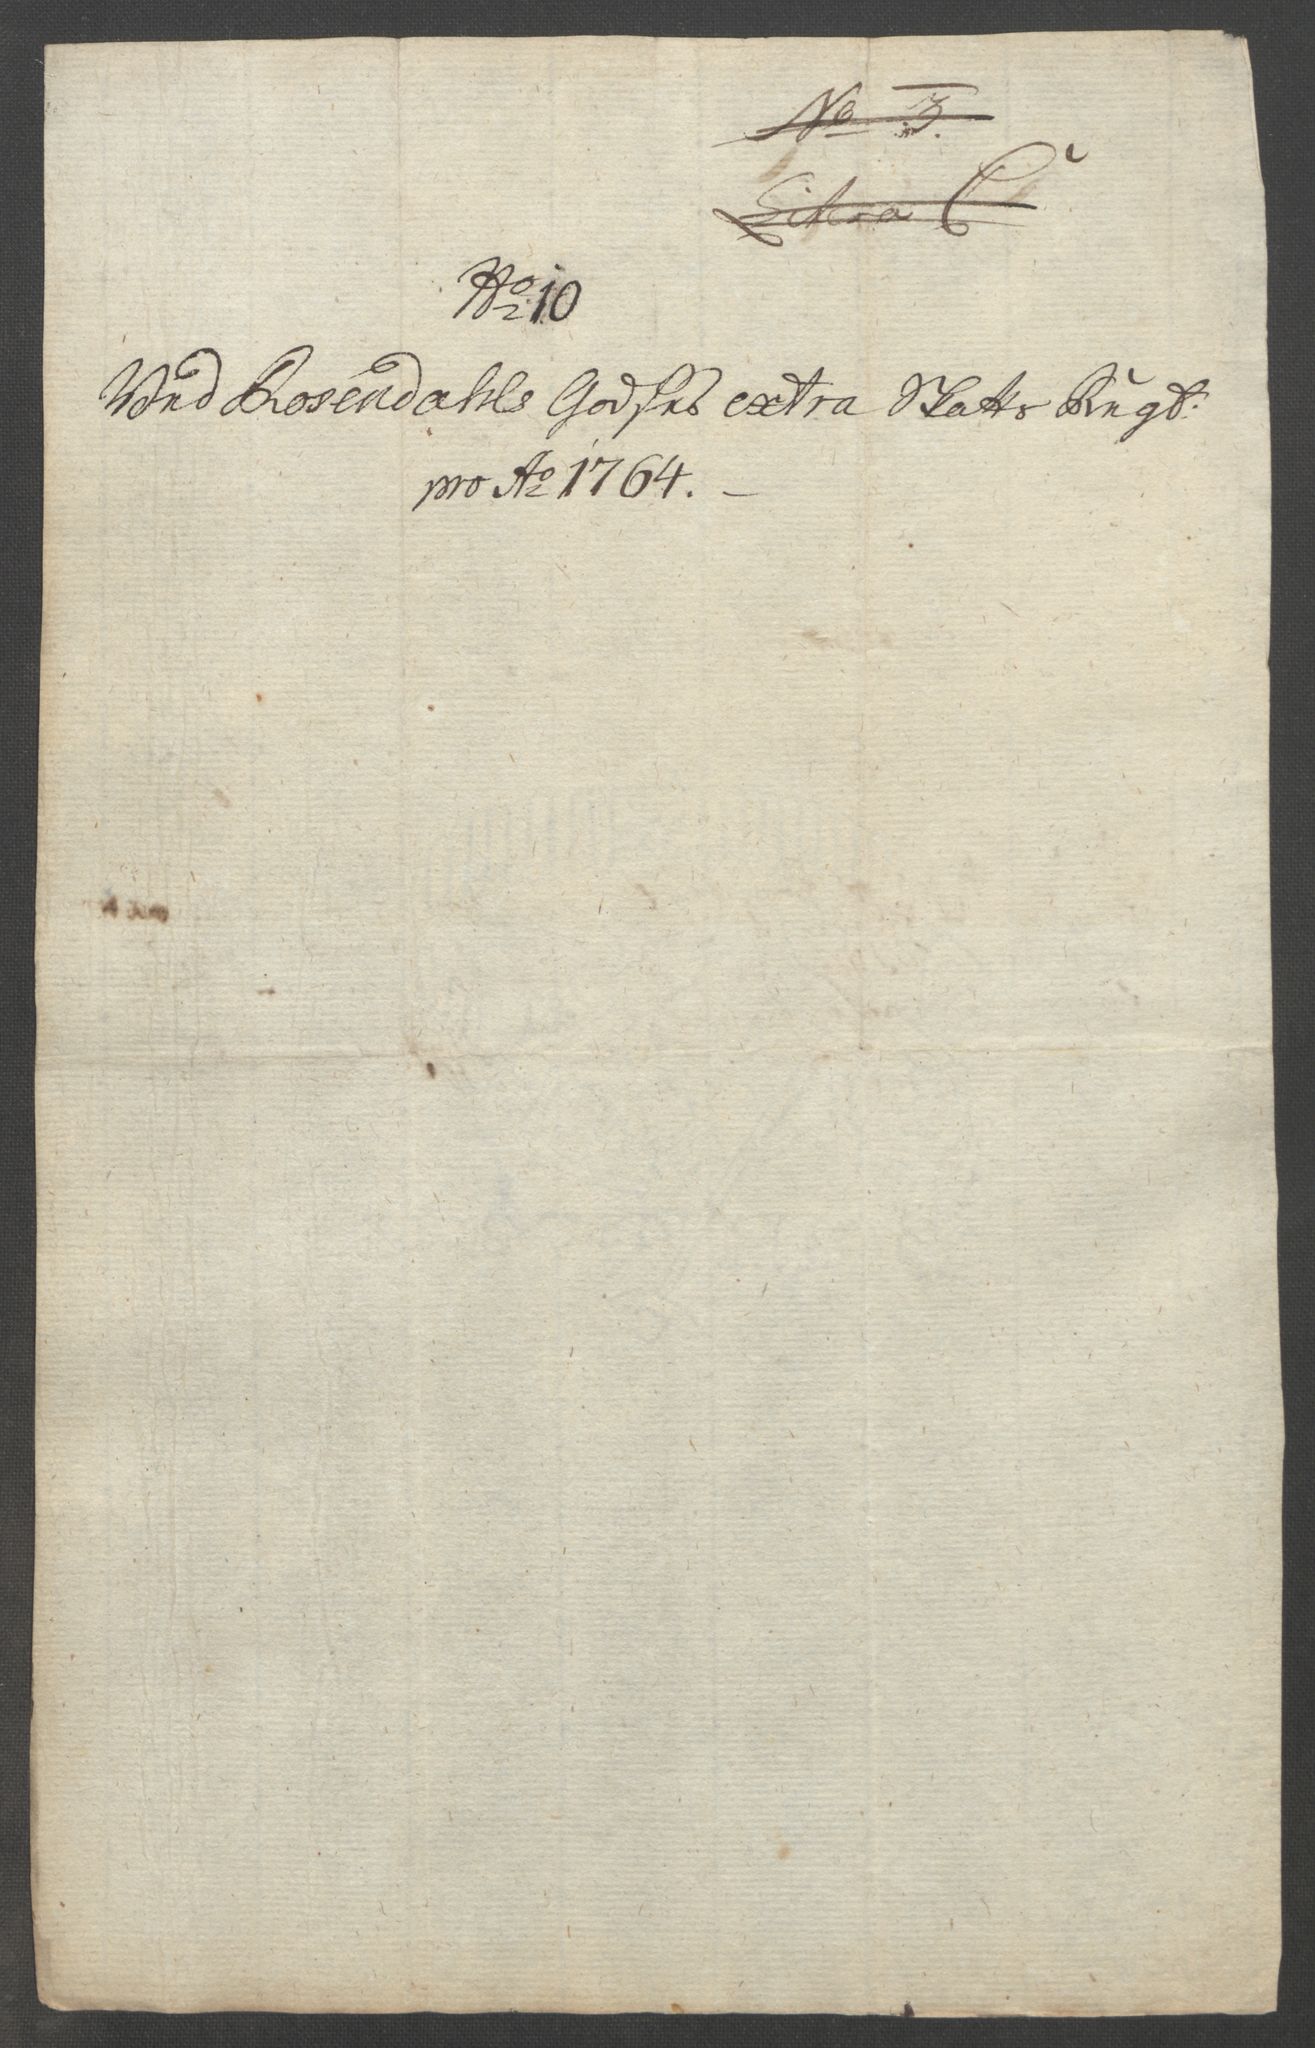 No 3.
Litera C
No 10
Ved Rosendahls Godses extra Skatts Regt:
pro Ao 1764. –